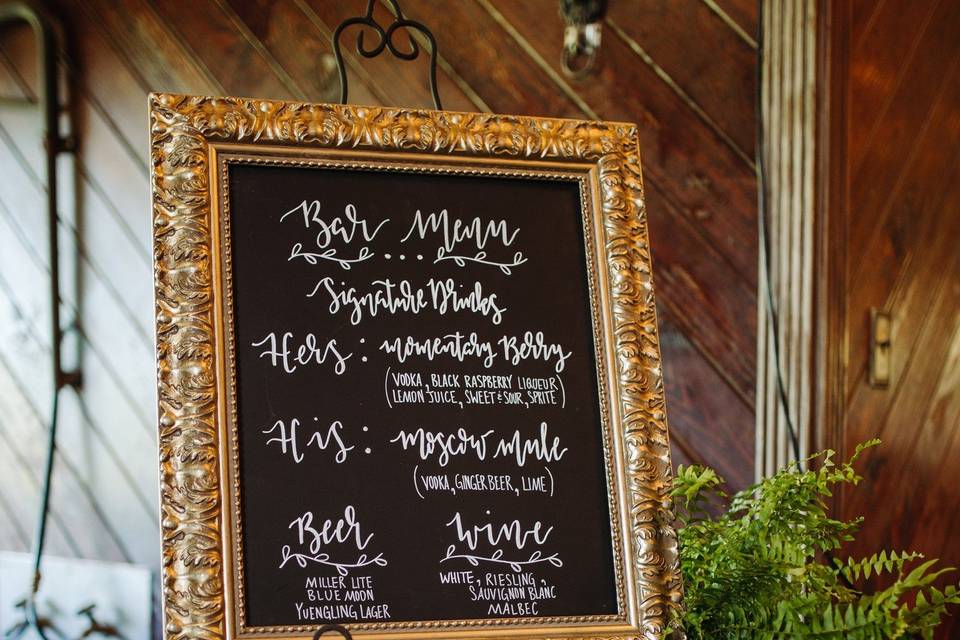 Bar Menu
Signature Drinks
Hers: momentary Berry
(VODKA, BLACK RASPBERRY LIQUEUR
LEMON JUICE, SWEET & SOUR, SPRITE)
His: moscow mule
(VODKA, GINGER BEER, LIME)
Beer
MILLER LITE
BLUE MOON
YUENGLING LAGER
wine
WHITE, RIESLING,
SAUVIGNON BLANC
MALBEC